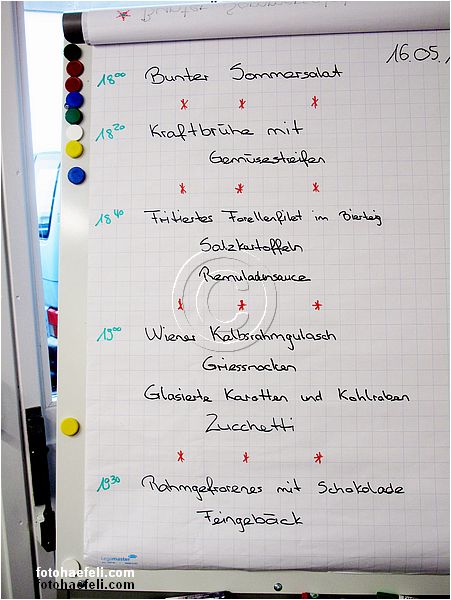 16.05.
18⁰⁰ Bunter Sommersalat
* * *
18²⁰ Kraftbrühe mit
Gemüsestreifen
* * *
18⁴⁰ Fritiertes Forellenfilet im Bierteig
Salzkartoffeln
Remuladensauce
©
* * *
19⁰⁰ Wiener Kalbsrahmgulasch
Griessnocken
Glasierte Karotten und Kohlraben
Zucchetti
* * *
19³⁰ Rahmgefrorenes mit Schokolade
Feingebäck
Legamaster
fotohaefeli.com
fotohaefeli.com